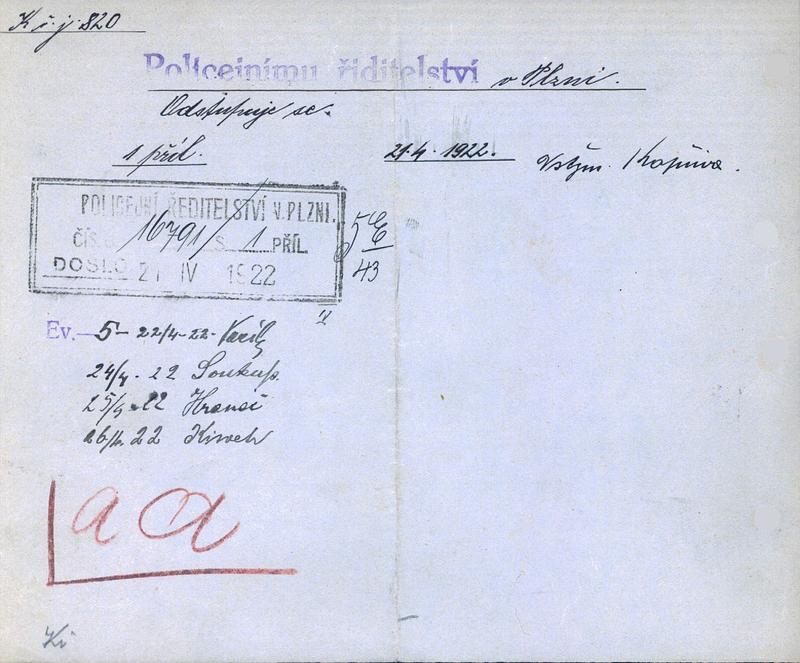 K č. j. 820
Policejnímu řiditelství v Plzni.
Odstupuje se.
1 příl. 21.4. 1922.
POLICEJNÍ ŘEDITELSTVÍ V PLZNI.
ČÍS. 16791/ S 1 PŘÍL.
DOŠLO 21 IV 1922
5
43
Ev. 5 - 22/4 - 22
24/4 - 22 Soukup.
25/4 22
26/4 22
a a
Ki